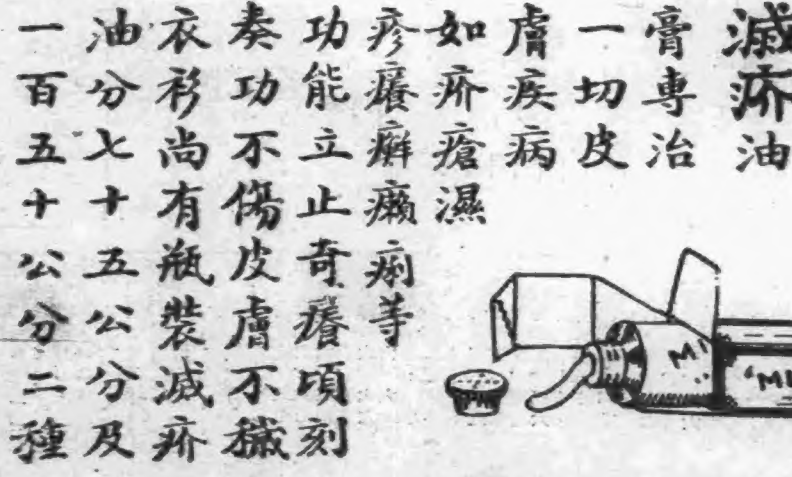 滅疥油
膏專治
一切皮
膚疾病
如疥瘡濕
疹癢癬癩痢等
功能立止奇癢頃刻
奏功不傷皮膚不穢
衣衫尚有瓶裝滅疥
油分七十五公分及
一百五十公分二種